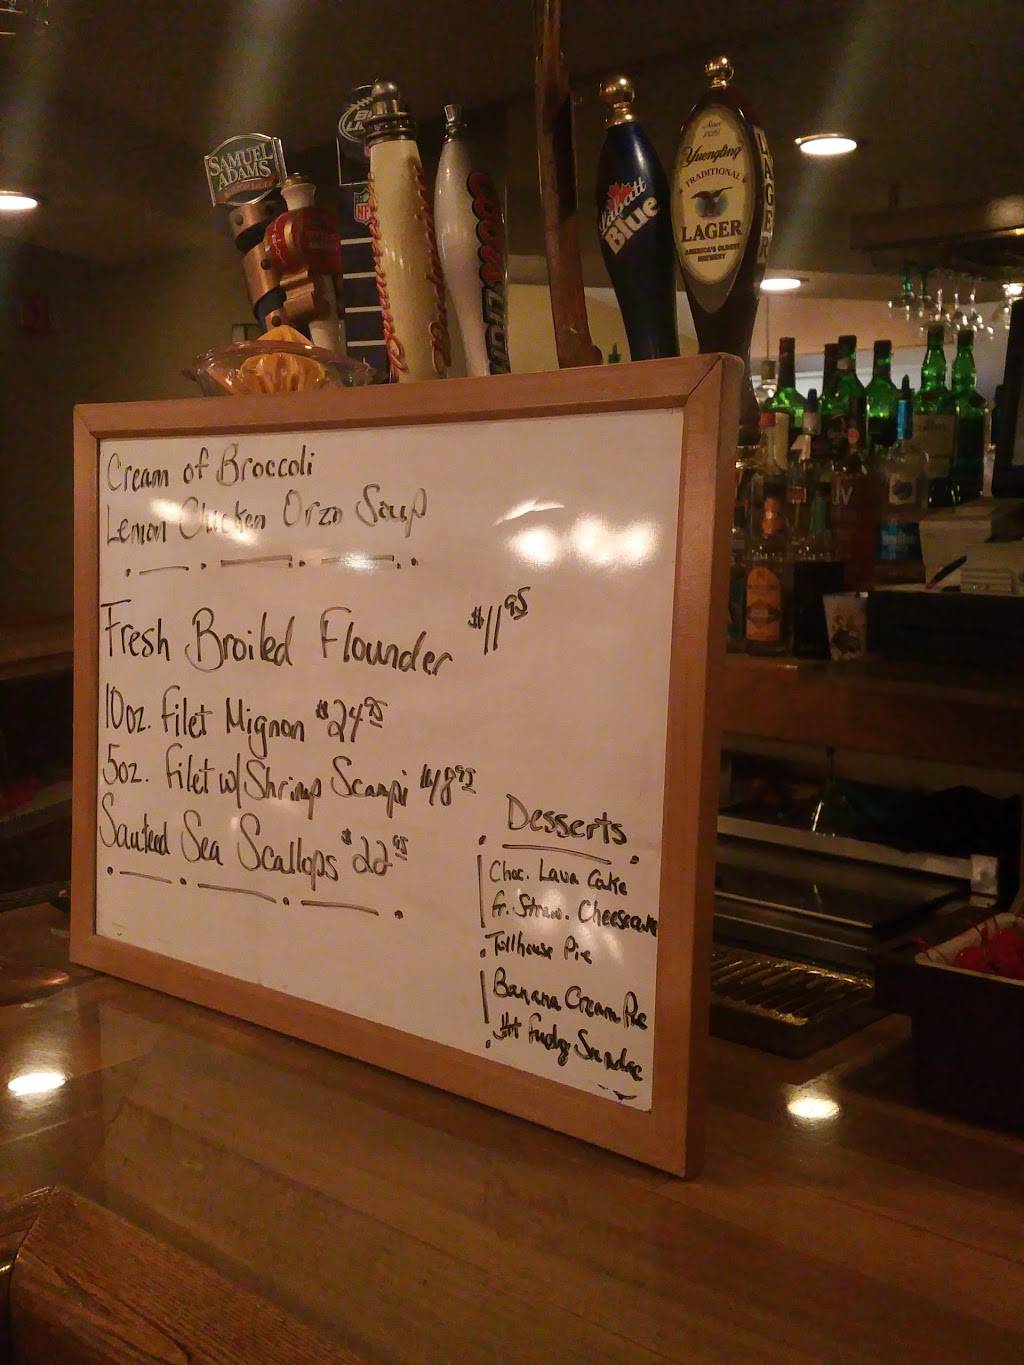 SAMUEL
ADAMS
NFL
COORS LIGHT
Labatt
Blue
Since 1829
Yuengling
TRADITIONAL
LAGER
AMERICA'S OLDEST
BREWERY
LAGER
Cream of Broccoli
Lemon Chicken Orzo Soup
Fresh Broiled Flounder $11 95
10oz. Filet Mignon $24 95
5oz. Filet w/ Shrimp Scampi $18 95
Sauteed Sea Scallops $22 95
Desserts
Choc. Lava Cake
Fr. Straw. Cheesecake
Tollhouse Pie
Banana Cream Pie
Hot Fudge Sundae